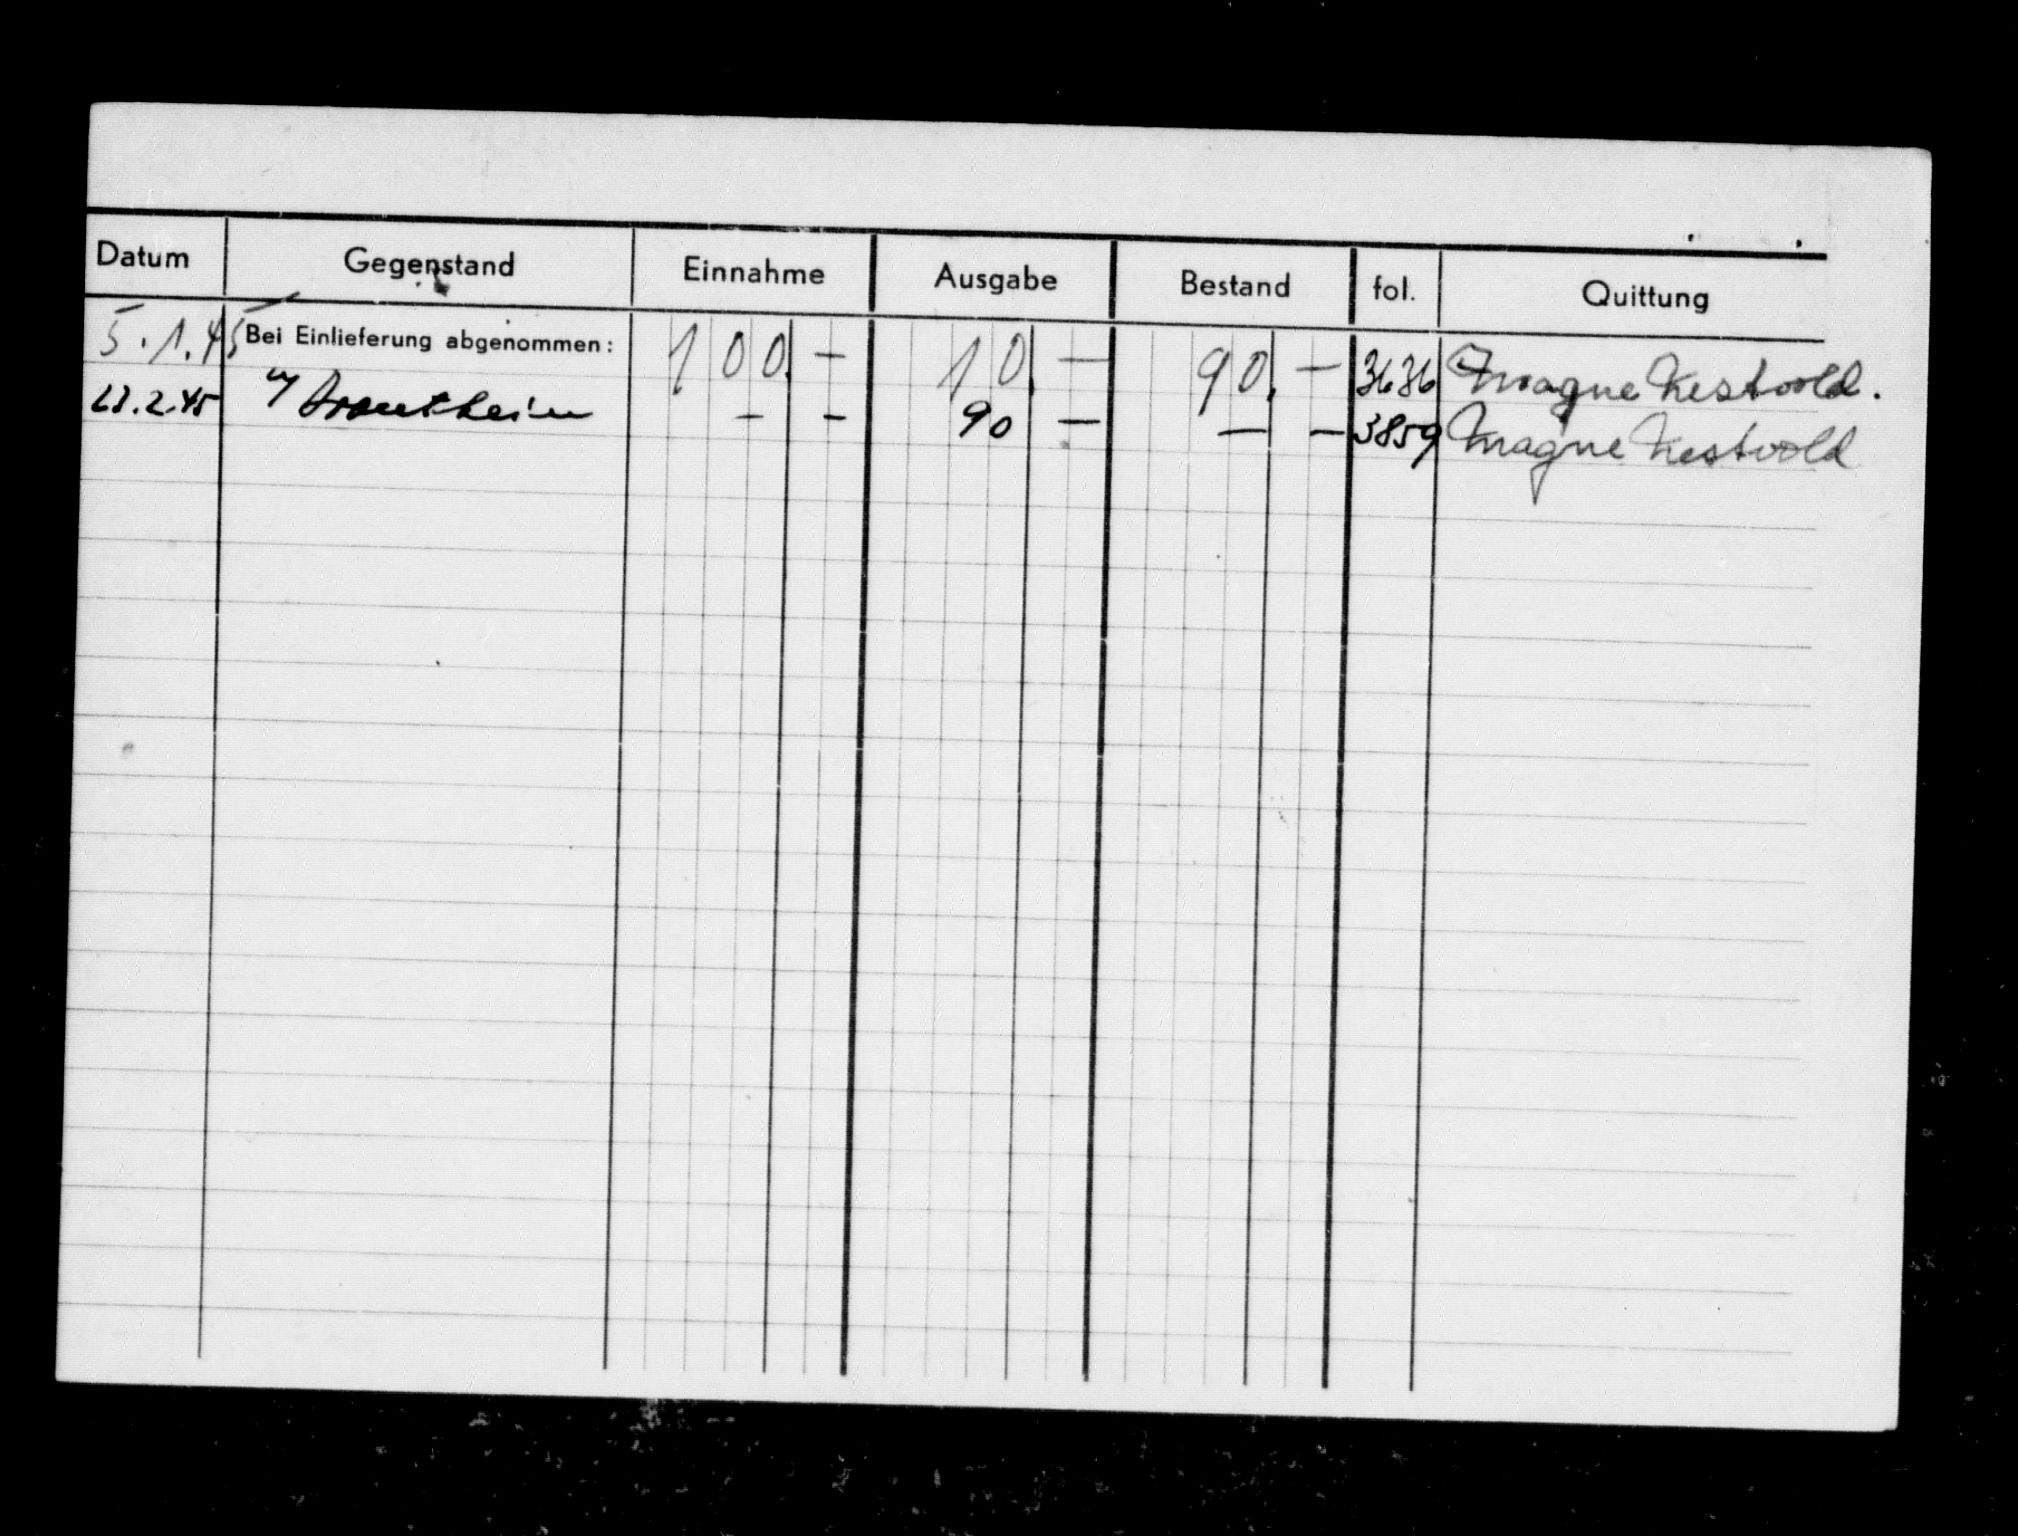 Datum Gegenstand Einnahme Ausgabe Bestand fol. Quittung
5.1.45 Bei Einlieferung abgenommen: 100.— 10.— 90.— 3636 Magne Kestvold.
.2.45 — — 90 — — — 3859 Magne Kestvold